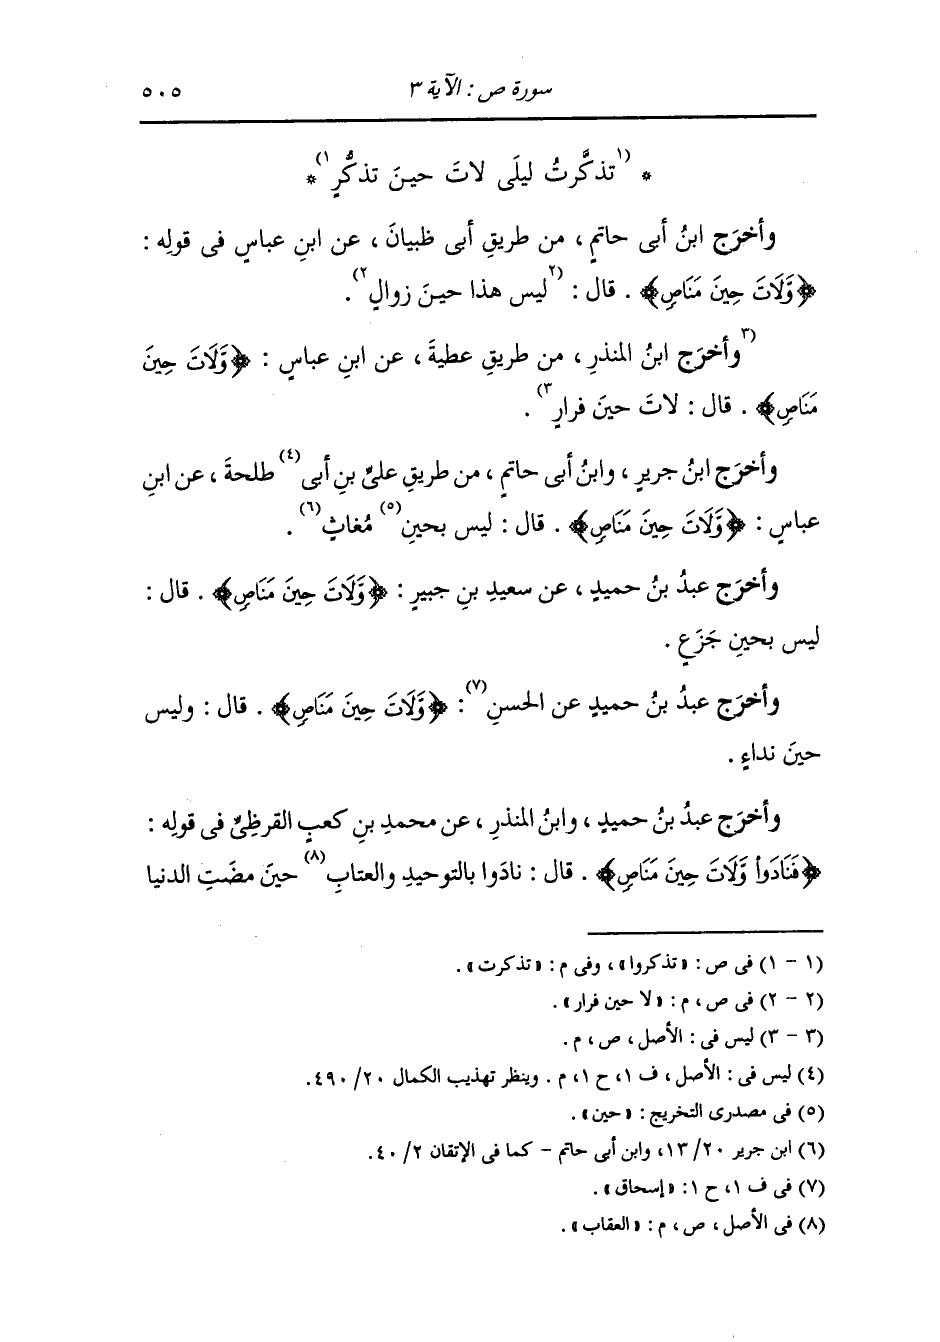 سورة ص : الآية ٣ ٥٠٥
* (١تذكَّرتُ ليلَى لاتَ حينَ تذكُّرٍ١) *
وأخرَج ابنُ أبى حاتمٍ ، من طريقِ أبى ظبيانَ ، عن ابنِ عباسٍ فى قولِه :
﴿وَّلَاتَ حِينَ مَنَاصٍ﴾ . قال : (٢ليس هذا حينَ زوالٍ٢) .
(٣وأخرَج ابنُ المنذرِ ، من طريقِ عطيةَ ، عن ابنِ عباسٍ : ﴿وَّلَاتَ حِينَ
مَنَاصٍ﴾ . قال : لاتَ حينَ فرارٍ٣) .
وأخرَج ابنُ جريرٍ ، وابنُ أبى حاتمٍ ، من طريقِ علىِّ بنِ أبى(٤) طلحةَ ، عن ابنِ
عباسٍ : ﴿وَّلَاتَ حِينَ مَنَاصٍ﴾ . قال : ليس بحينِ(٥) مُغاثٍ(٦) .
وأخرَج عبدُ بنُ حميدٍ ، عن سعيدِ بنِ جبيرٍ : ﴿وَّلَاتَ حِينَ مَنَاصٍ﴾ . قال :
ليس بحينِ جَزَعٍ .
وأخرَج عبدُ بنُ حميدٍ عن الحسنِ(٧) : ﴿وَّلَاتَ حِينَ مَنَاصٍ﴾ . قال : وليس
حينَ نداءٍ .
وأخرَج عبدُ بنُ حميدٍ ، وابنُ المنذرِ ، عن محمدِ بنِ كعبٍ القرظِىِّ فى قولِه :
﴿فَنَادَواْ وَّلَاتَ حِينَ مَنَاصٍ﴾ . قال : نادَوا بالتوحيدِ والعتابِ(٨) حينَ مضَتِ الدنيا
(١ - ١) فى ص : «تذكروا» ، وفى م : «تذكرت» .
(٢ - ٢) فى ص ، م : «لا حين فرار» .
(٣ - ٣) ليس فى : الأصل ، ص ، م .
(٤) ليس فى : الأصل ، ف ١، ح ١، م . وينظر تهذيب الكمال ٢٠/ ٤٩٠.
(٥) فى مصدرى التخريج : «حين» .
(٦) ابن جرير ٢٠/ ١٣، وابن أبى حاتم - كما فى الإتقان ٢/ ٤٠.
(٧) فى ف ١، ح ١: «إسحاق» .
(٨) فى الأصل ، ص ، م : «العقاب» .